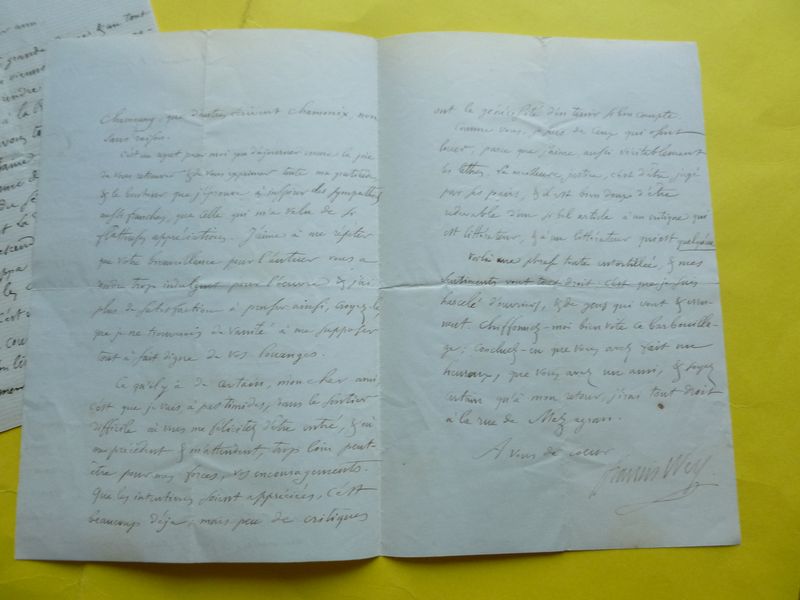 Chamouny, que d'autres écrivent Chamonix, non
sans raison.
C'est un regret pour moi que d'ajourner encore la joie
de vous retrouver & de vous exprimer toute ma gratitude
& le bonheur que j'éprouve à inspirer des sympathies
aussi franches, que celle qui m'a valu de si
flatteuses appréciations. J'aime à me répéter
que votre bienveillance pour l'auteur vous a
rendu trop indulgent pour l'oeuvre & j'ai
plus de satisfaction à penser ainsi, croyez-le,
que je ne trouverais de vanité à me supposer
tout à fait digne de vos louanges.
Ce qu'il y a de certain, mon cher ami,
c'est que je vais, à pas timides, dans le sentier
difficile où vous me félicitez d'être entré, & où
me précèdent & m'attendent, trop loin peut-
être pour mes forces, vos encouragements.
Que les intentions soient appréciées, c'est
beaucoup déjà; mais peu de critiques
ont la générosité d'en tenir si bon compte.
Comme vous, je suis de ceux qui osent
louer, parce que j'aime aussi véritablement
les lettres. La meilleure justice, c'est d'être jugé
par ses pairs, & il est bien doux d'être
redevable d'un si bel article à un critique qui
est littérateur, & à un littérateur qui est quelqu'un
Voilà une phrase toute entortillée, & mes
sentiments vont tout droit: c'est que je suis
harcelé d'ouvriers, & de gens qui vont & vien-
nent. Chiffonnez-moi bien vite ce barbouilla-
ge; concluez-en que vous avez fait un
heureux, que vous avez un ami, & soyez
certain qu'à mon retour, j'irai tout droit
à la rue de Mazagran.
A vous de coeur
Francis Wey